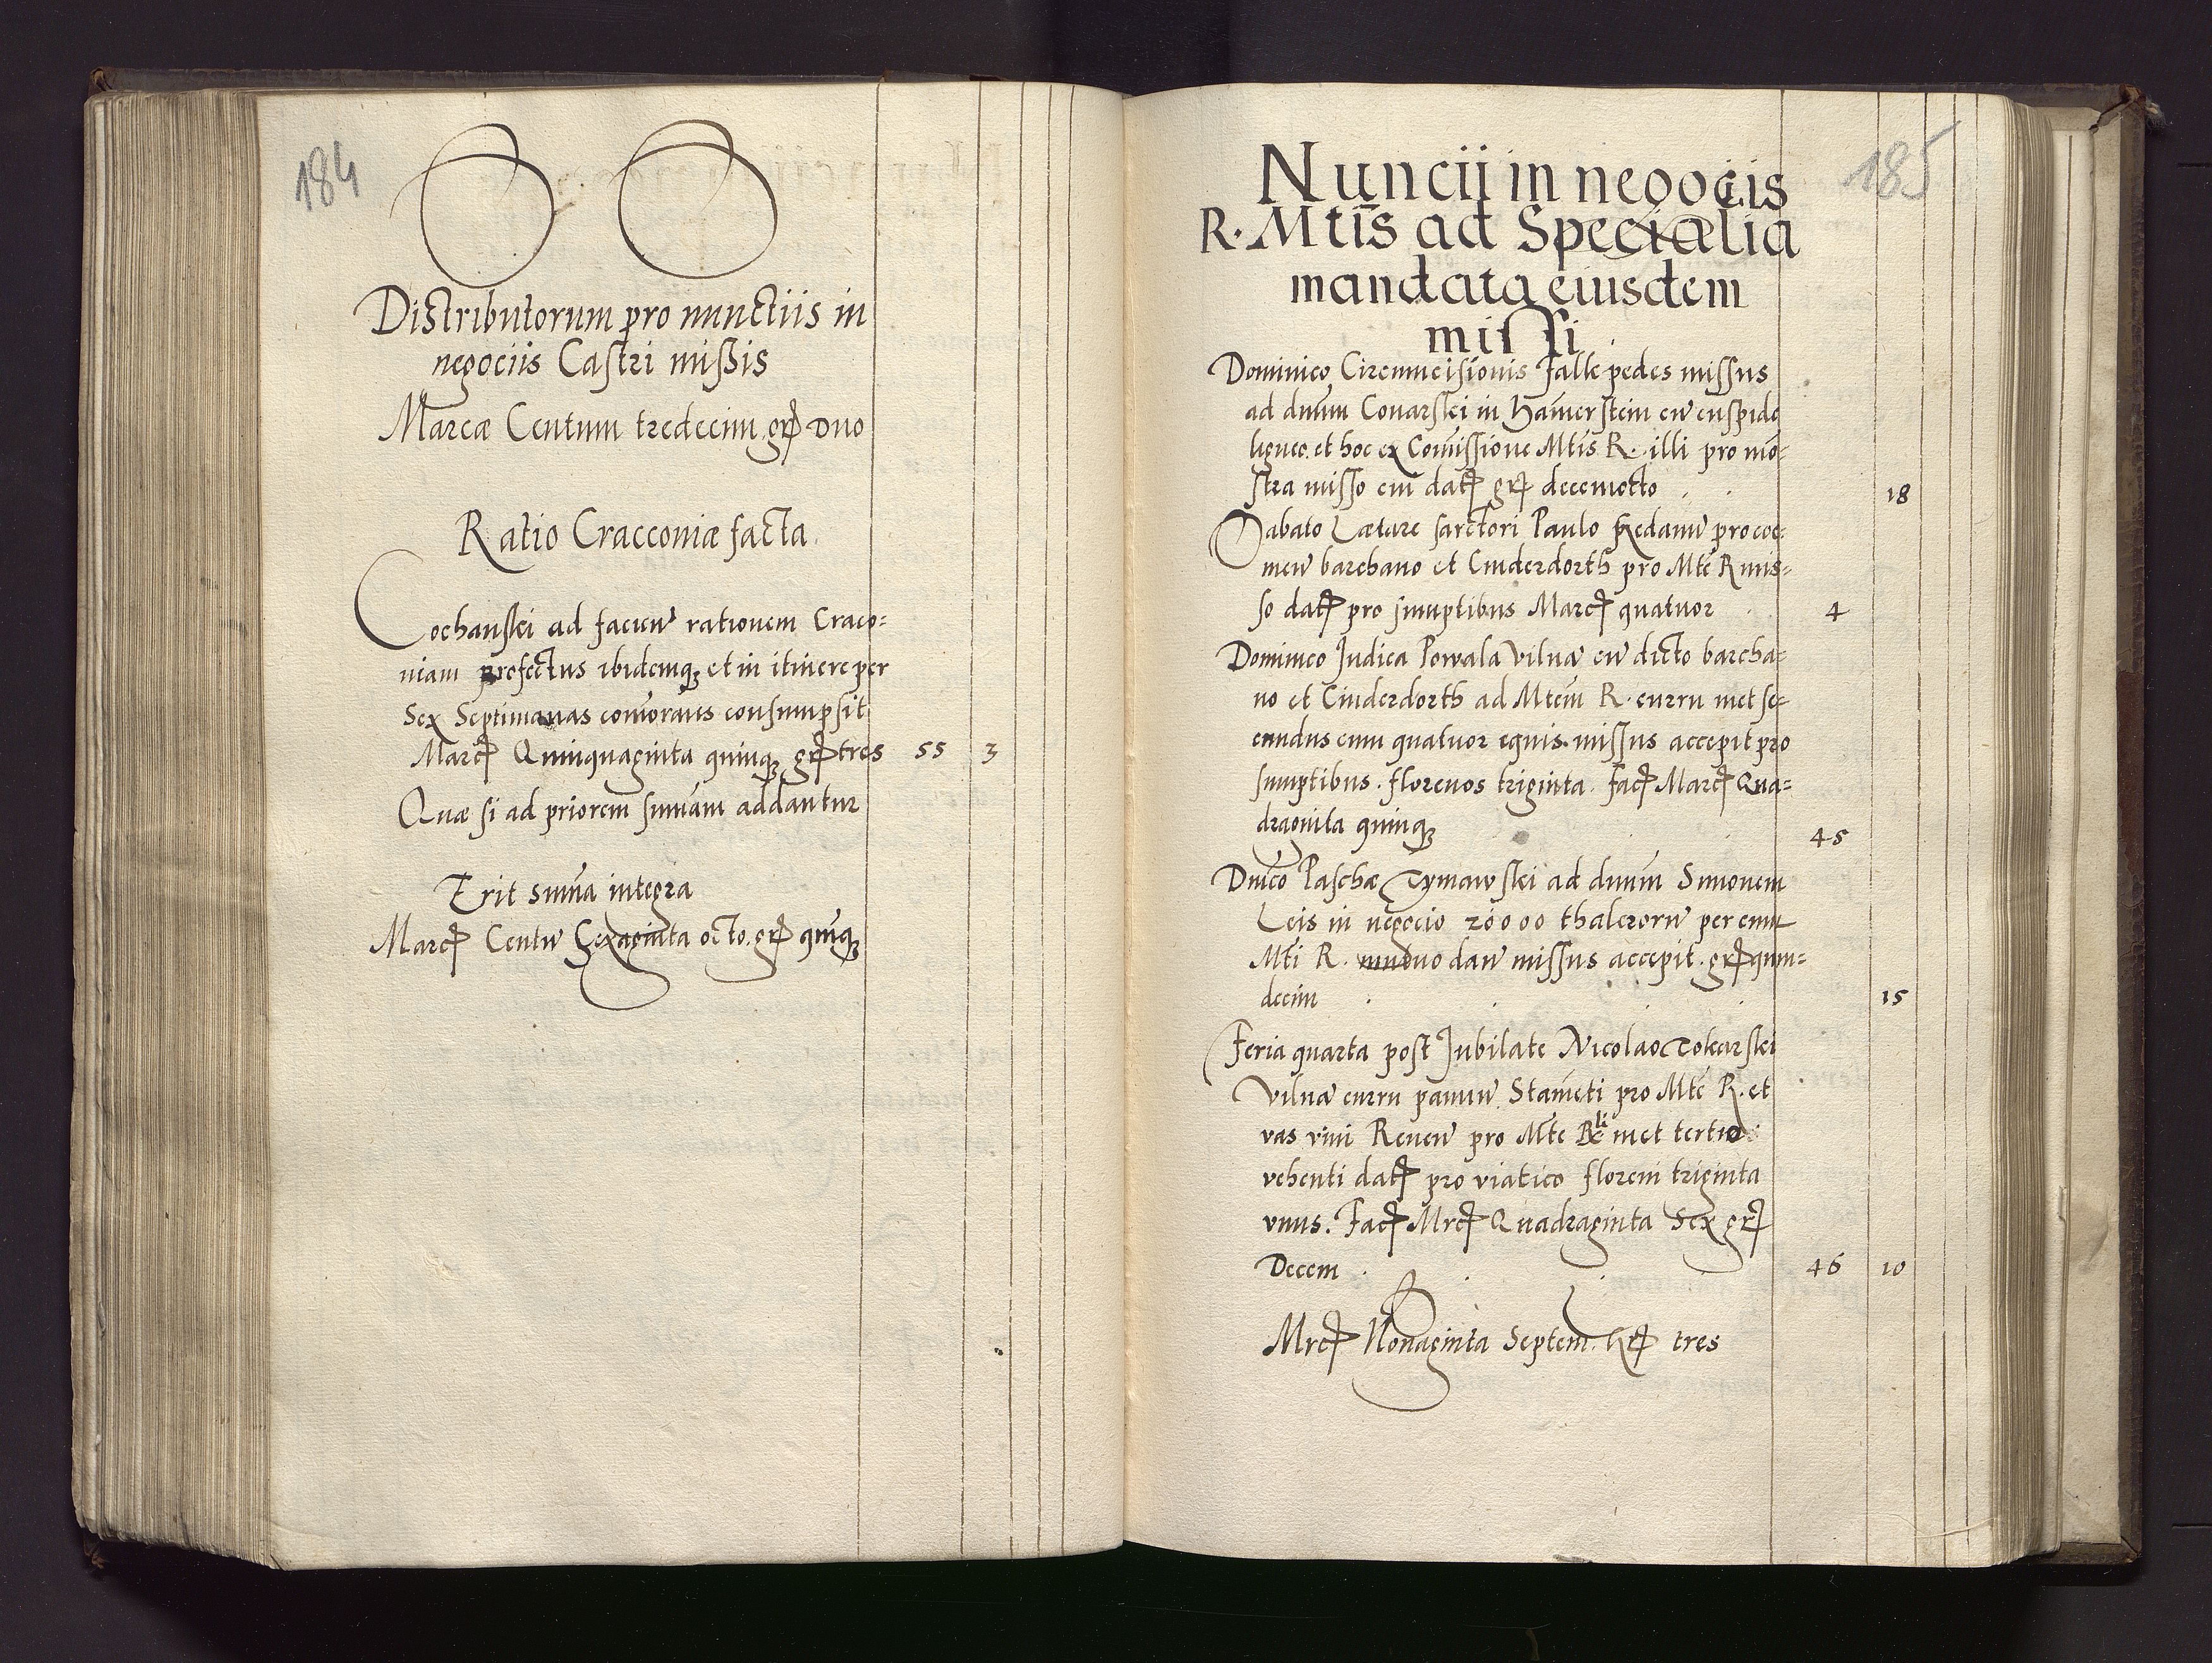 184
Distributorum pro nunctiis in
negociis Castri missis
Marcæ Centum tredecim grꝭ Duo
Ratio Cracconiæ facta
Cochanskei ad facien̄ rationem Craco-
niam profectus ibidemqꝫ et in itinere per
Sex Septimanas com̄orans consumpsit
Marcꝭ Quinquaginta quinqꝫ grꝭ tres 55 3
Quæ si ad priorem sum̄am addantur
Erit sum̄a integra
Marcꝭ Centū Sexaginta octo grꝭ quinqꝫ
185
Nuncii in negociis
R. Mtis̄ ad Specialia
mandata eiusdem
missi
Dominico Circumcisionis Jalle pedes missus
ad dnūm Conarskei in Ham̄erstein cū cuspide
ligneo. et hoc ex Com̄issione Mtis̄ R. illi pro mō-
stra misso em̄ datꝭ grꝭ decemocto 18
Sabato Lætare sarctori Paulo pro coe-
men̄ barchano et Cinderdorth pro Mtē R mis-
so datꝭ pro sumptibus Marcꝭ quatuor 4
Dominico Judica Powala Vilnā cū dicto barcha-
no et Cinderdorth ad Mtēm R. curru met se-
cundus cum quatuor equis. missus accepit pro
sumptibus. florenos triginta. facꝭ Marcꝭ Qua-
draginta quinqꝫ 45
Dnīco Paschæ Tymawskei ad dnūm Simonem
Leis in negocio 20000 thalerorū per eum
Mti R. mutuo dan̄ missus accepit. grꝭ quin-
decim 15
Feria quarta post Jubilate Nicolao Tokarskei
Vilnā curru pannū Stam̄eti pro Mtē R. et
vas vini Renen̄ pro Mte Rli met tertio
vehenti datꝭ pro viatico floreni triginta
vnus. Facꝭ Mrcꝭ Quadraginta Sex grꝭ
Decem 46 10
Mrcꝭ Nonaginta Septem. grꝭ tres